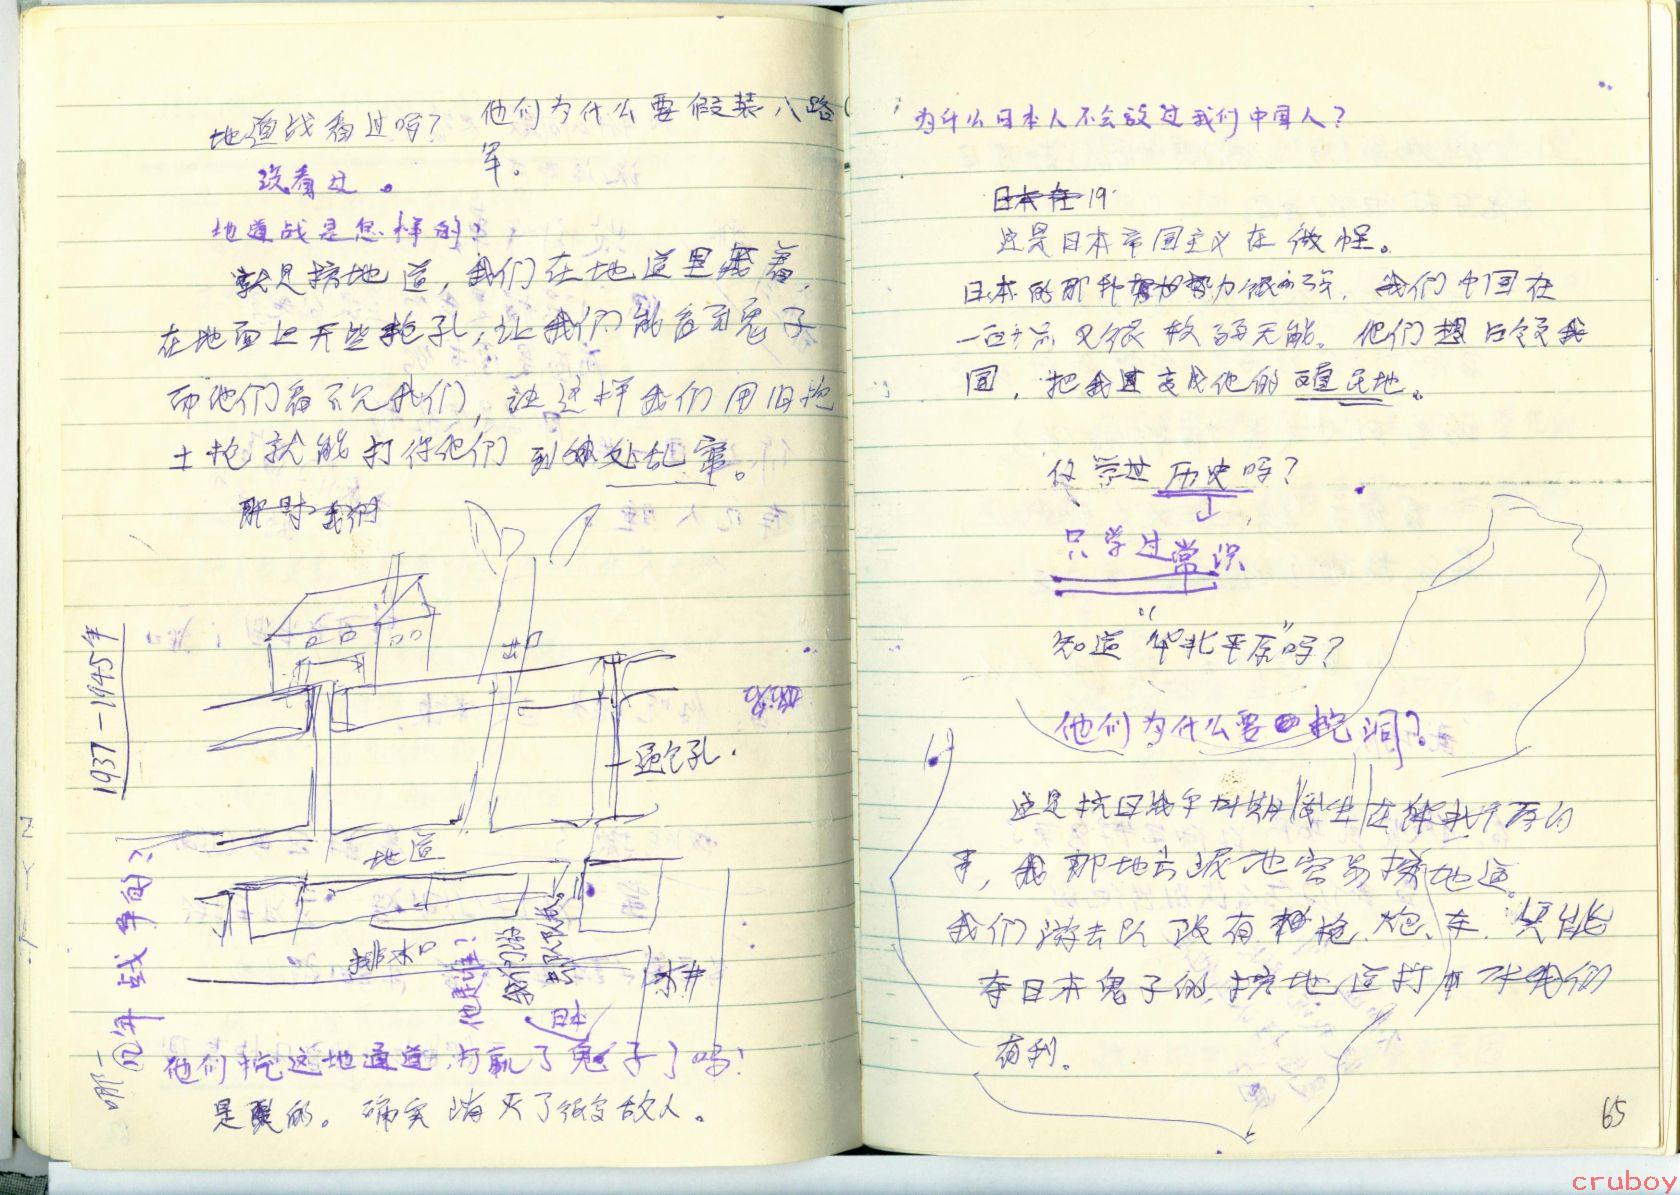 地道战看过吗?
没看过。
他们为什么要假装八路
军。
地道战是怎样的?
就是挖地道,我们在地道里看着,
在地面上开些枪孔,让我们能看到鬼子
而他们看不见我们,这样我们用旧炮
土枪就能打得他们到处乱窜。
那时我们
出口
1937-1945年
哪几年战争的?
地道
排水口
水井
他是谁?
我们游
击队队长。
日本
他们挖这地通道,打赢了鬼子了吗!
是的。确实消灭了很多敌人。
为什么日本人不会放过我们中国人?
日本在19
这是日本帝国主义在
日本的那种势力很强,我们中国在
又很软弱无能。他们想占领我
国,把我国变成他的殖民地。
你学过历史吗?
只学过常识
知道“华北平原”吗?
他们为什么要挖洞?
这是抗日战争时期发生在
事,我那地去泥地容易挖地道。
我们游击队没有枪、炮、车,只能
夺日本鬼子的,挖地道打 对我们
有利。
65
cruboy